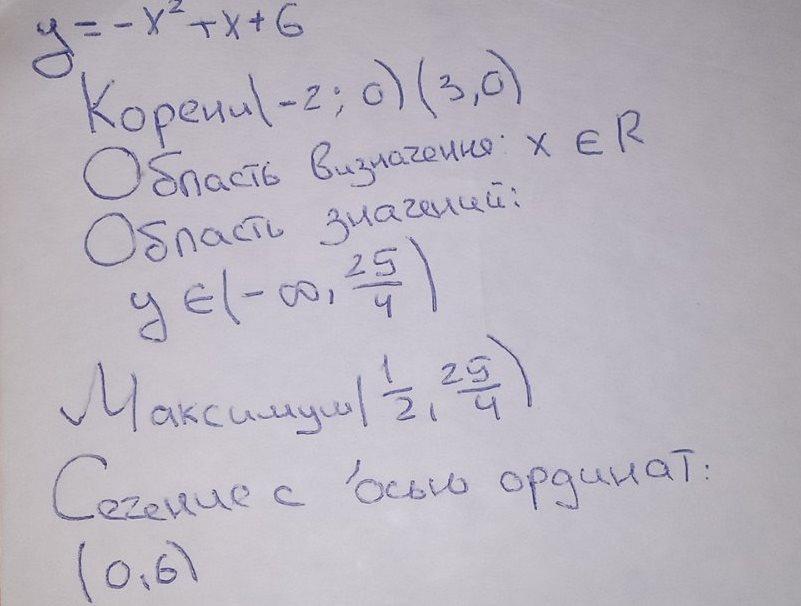 y = -x² + x + 6
Корени (-2; 0) (3, 0)
Область визначення: x ∈ R
Область значений:
y ∈ (-∞, 25/4)
Максимум (1/2, 25/4)
Сечение с осью ординат:
(0, 6)